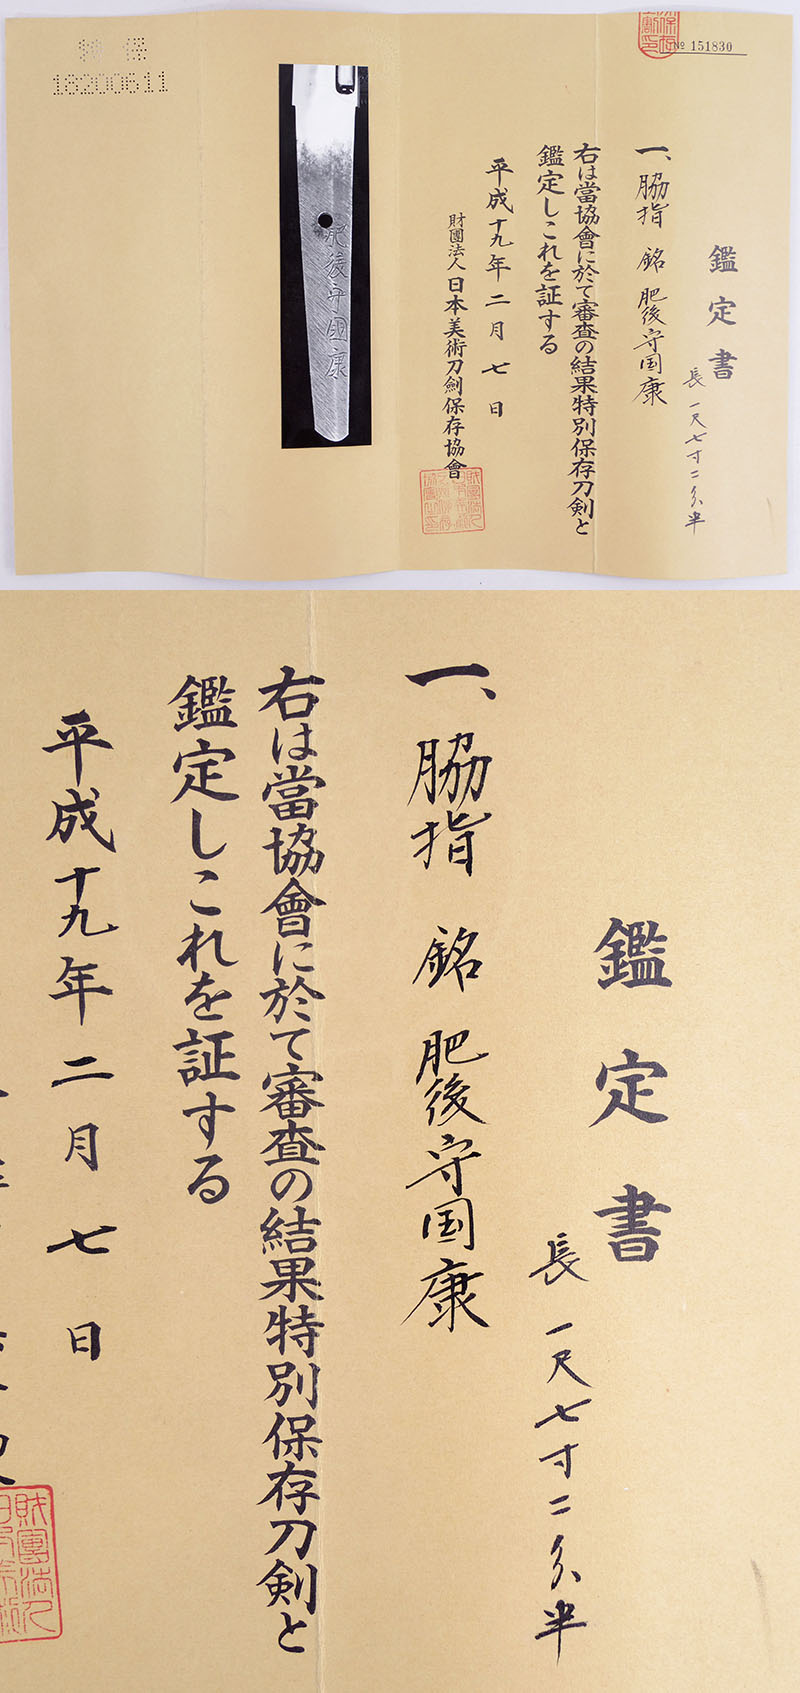 № 151830
鑑定書
長 一尺七寸二分半
一、脇指 銘 肥後守国康
右は當協會に於て審査の結果特別保存刀剣と
鑑定しこれを証する
平成十九年二月七日
財團法人日本美術刀劍保存協會
肥後守國康
特保
18200611
鑑定書
長 一尺七寸二分半
一、脇指 銘 肥後守国康
右は當協會に於て審査の結果特別保存刀剣と
鑑定しこれを証する
平成十九年二月七日